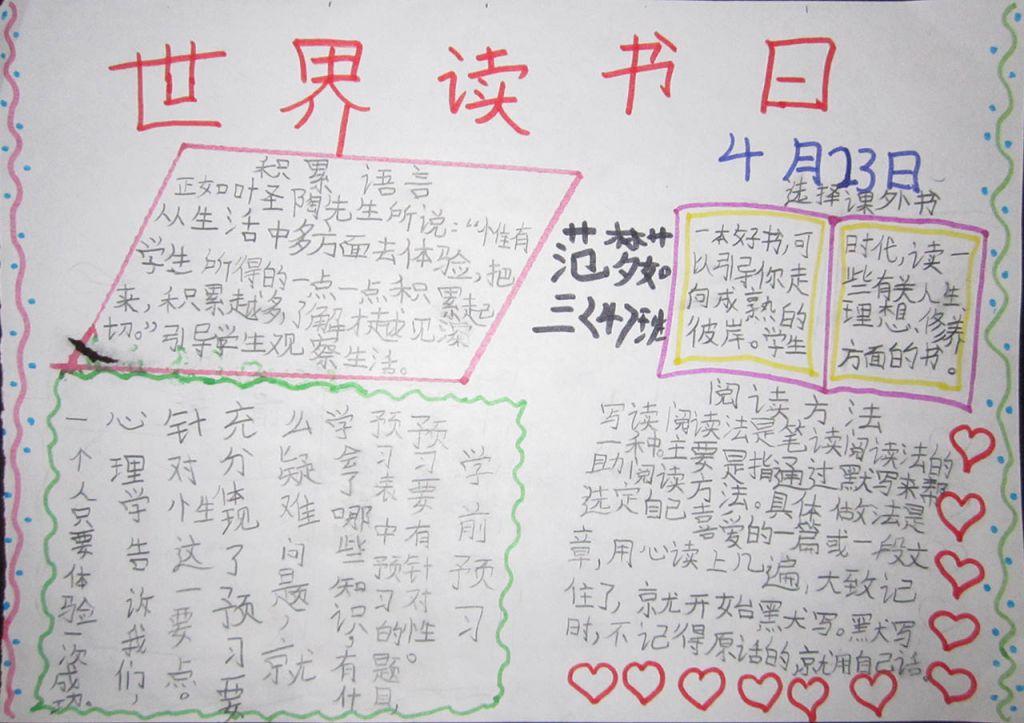 世界读书日
4月23日
积累语言
正如叶圣陶先生所说：“惟有
从生活中多方面去体验，把
学生所得的一点一点积累起
来，积累越多，了解才越见深
切。”引导学生观察生活。
三（4）班
选择课外书
一本好书，可
以引导你走
向成熟的
彼岸。学生
时代，读一
些有关人生
理想、修养
方面的书。
学前预习
预习要有针对性。
预习表中预习的题目，
学会了哪些知识，有什
么疑难问题，就
充分体现了预习要
针对性这一要点。
心理学告诉我们，
一个人只要体验一次成功。
阅读方法
写读阅读法是笔读阅读法的
一种。主要是指通过默写来帮
助阅读方法。具体做法是
选定自己喜爱的一篇或一段文
章，用心读上几遍，大致记
住了，就开始默写。默写
时，不记得原话的，就用自己话。